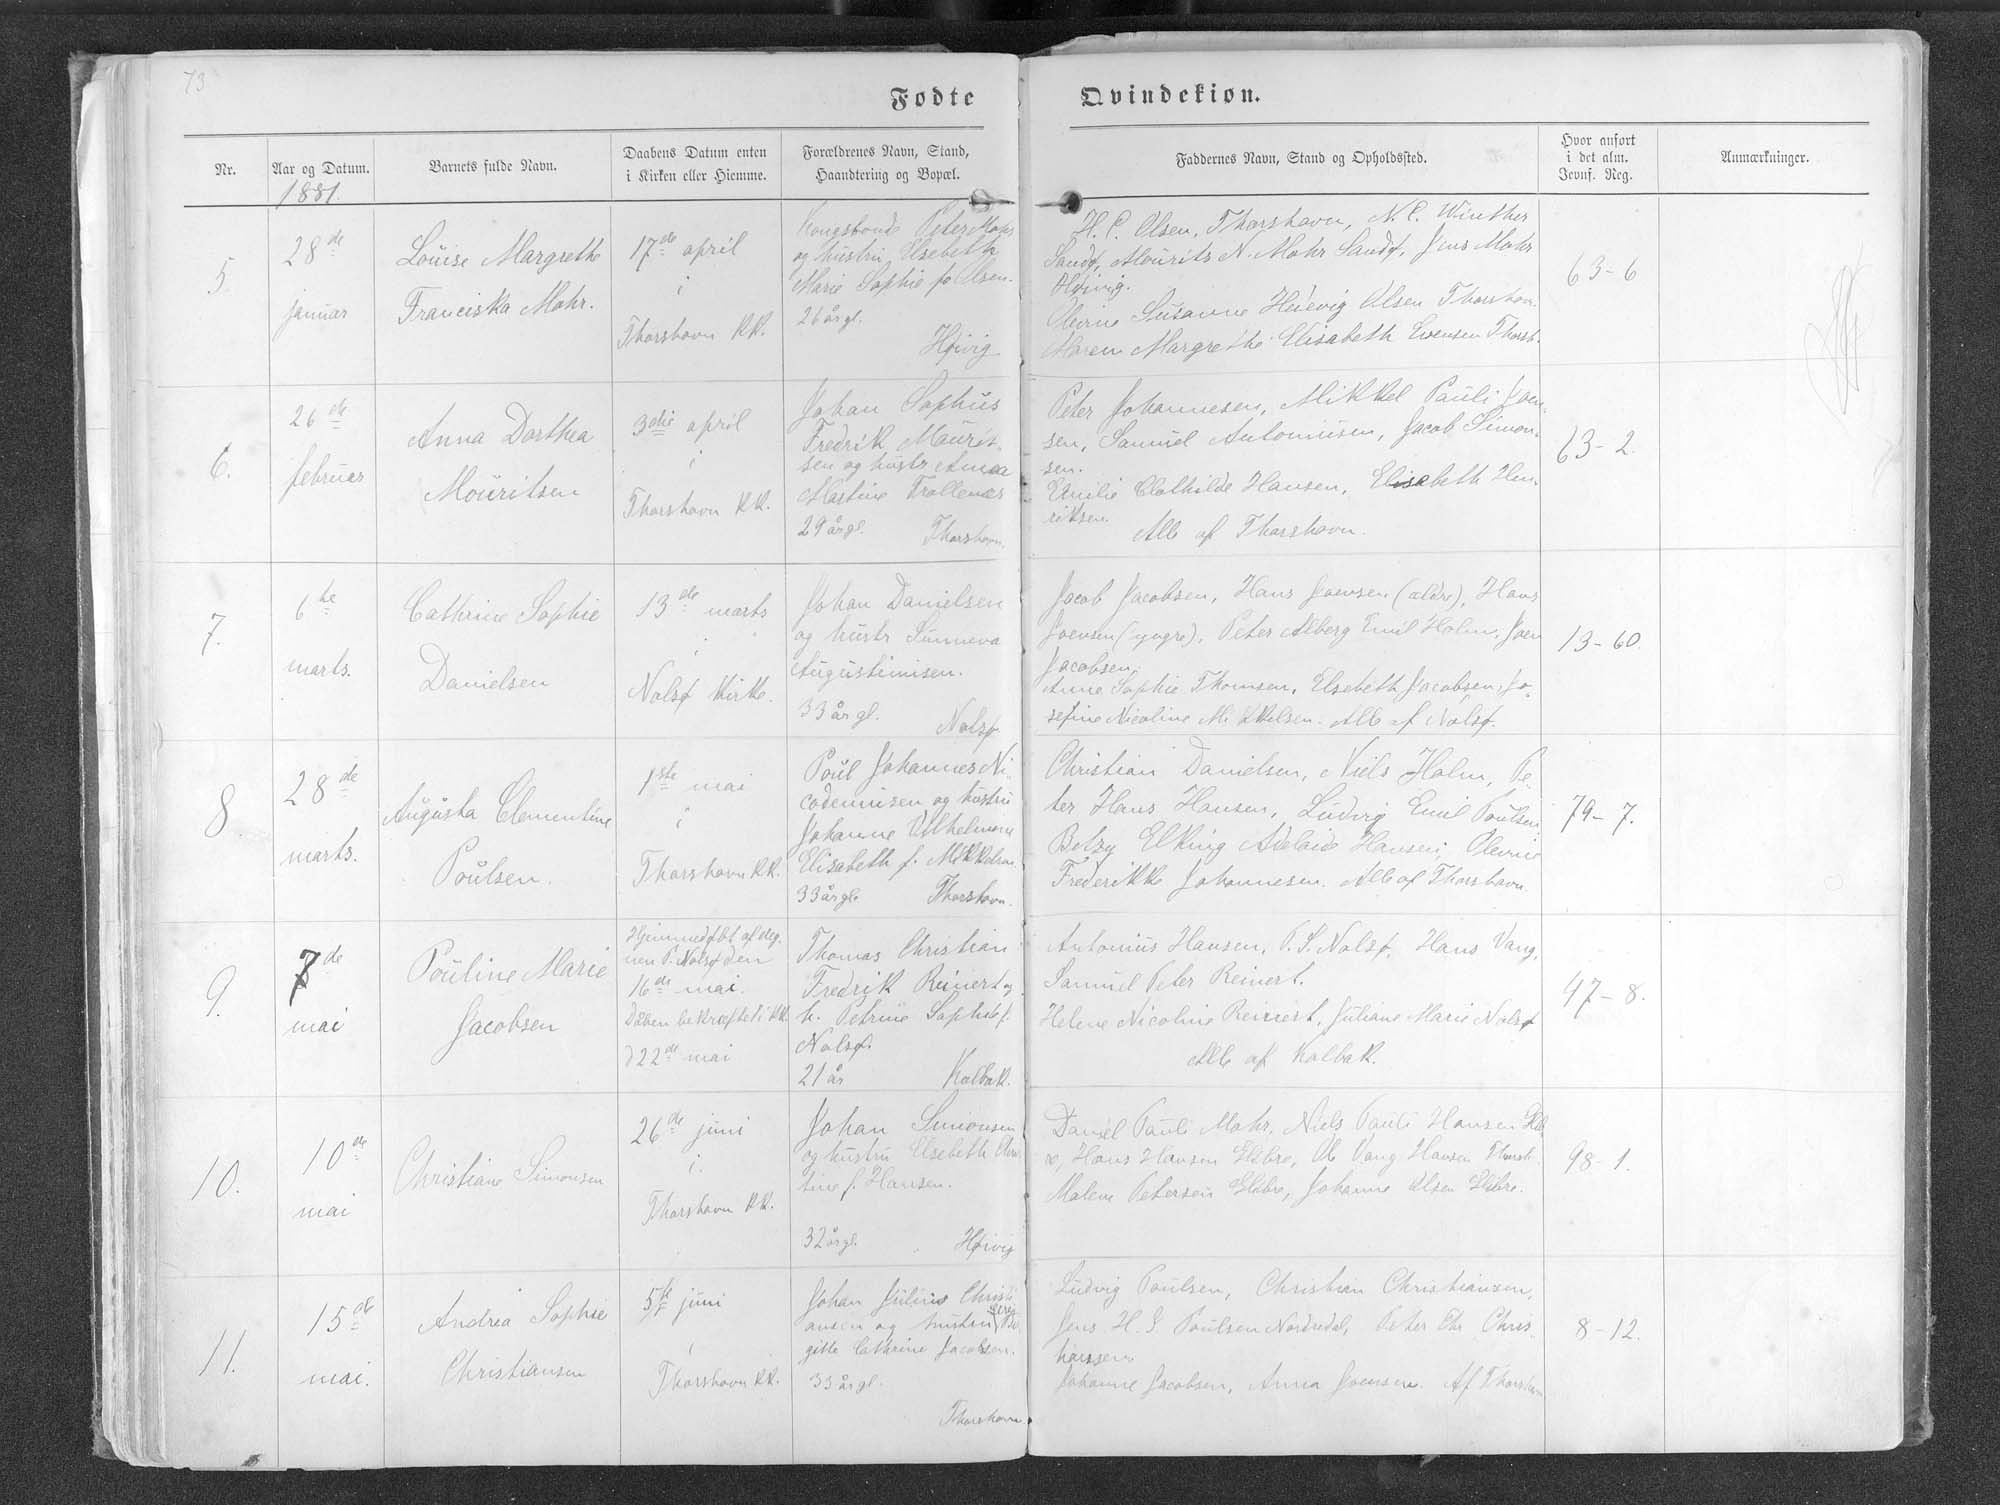 73
Fødte
Qvindekiøn.
Nr.
Aar og Datum.
Barnets fulde Navn.
Daabens Datum enten
i Kirken eller Hiemme.
Forældrenes Navn, Stand,
Haandtering og Bopæl.
Faddernes Navn, Stand og Opholdssted.
Hvor anført
i det alm.
Jevnf. Reg.
Anmærkninger.
1881.
5
28de
januar
Louise Margrethe
Franciska Mohr.
17de april
i
Thorshavn KK.
Kongsbonde Peter Mohr
og hustru Elsebeth
Marie Sophie fø Olsen.
26 årgl.
Høivig
H. C. Olsen, Thorshavn, N. C. Winther
Sandø, Mourits N. Mohr Sandø, Jens Mohr
Høivig.
Olevine Susanne Hedevig Olsen Thorshavn
Maren Margrethe Elisabeth Evensen Thorsh.
63-6
6.
26de
februar
Anna Dorthea
Mouritsen
3die april
i
Thorshavn KK.
Johan Sophus
Fredrik Maurit-
sen og hustr Anna
Mastine Trollenæs
29 årgl.
Thorshavn.
Peter Johannesen, Mikkel Pauli Joen-
sen, Samuel Antoniusen, Jacob Simon-
sen.
Emilie Clothilde Hansen, Elisabeth Hen-
riksen.
Alle af Thorshavn.
63-2.
7.
6te
marts.
Cathrine Sophie
Danielsen
13de marts
i
Nolsø Kirke.
Johan Danielsen
og hustr Sunneva
Augustinusen.
33 årgl.
Nolsø
Jacob Jacobsen, Hans Joensen (ældre), Hans
Joensen (yngre), Peter Alberg Emil Holm, Joen
Jacobsen.
Anne Sophie Thomsen, Elsebeth Jacobsen, Jo-
sefine Nicoline Mikkelsen. Alle af Nolsø.
13-60.
8
28de
marts.
Augusta Clementine
Poulsen.
1ste mai
i
Thorshavn KK.
Poul Johannes Ni-
codemisen og hustru
Johanne Vilhelmine
Elisabeth f. Mikkelsen
33 årgl
Thorshavn.
Christian Danielsen, Niels Holm, Pe-
ter Hans Hansen, Ludvig Emil Poulsen
Betzy Elking Adelaide Hansen, Olevine
Frederikke Johannesen. Alle af Thorshavn
79-7.
9.
7de
mai
Pouline Marie
Jacobsen
Hjemmedøbt af deg-
nen P. Nolsø den
16de mai.
Dåben bekræftet i KK.
d 22de mai
Thomas Christian
Fredrik Reinert og
h. Petrine Sophie f.
Nolsø.
21 år
Kolbak.
Antonius Hansen, P. S. Nolsø, Hans Vang,
Samuel Peter Reinert.
Helene Nicoline Reinert, Juliane Marie Nolsø
Alle af Kolbak.
47-8.
10.
10de
mai
Christiane Simonsen
26de juni
i
Thorshavn KK.
Johan Simonsen
og hustru Elsebeth Chris
tine f. Hansen.
32 årgl.
Høivig
Daniel Pauli Mohr, Niels Pauli Hansen
Hans Hansen Eldbre, Ole Vang Hansen Thorsh.
Malene Petersen Eldbre, Johanne Olsen Eldbre.
98-1.
11.
15de
mai.
Andrea Sophie
Christiansen
5te juni
i
Thorshavn KK.
Johan Julius Christi
ansen og hustru Bir
gitte Cathrine Jacobsen.
33 årgl.
Thorshavn
Ludvig Poulsen, Christian Christiansen,
Jens H. J. Poulsen Nordredal, Peter Chr Chris-
tiansen.
Johanne Jacobsen, Anna Joensen. Af Thorshavn
8-12.